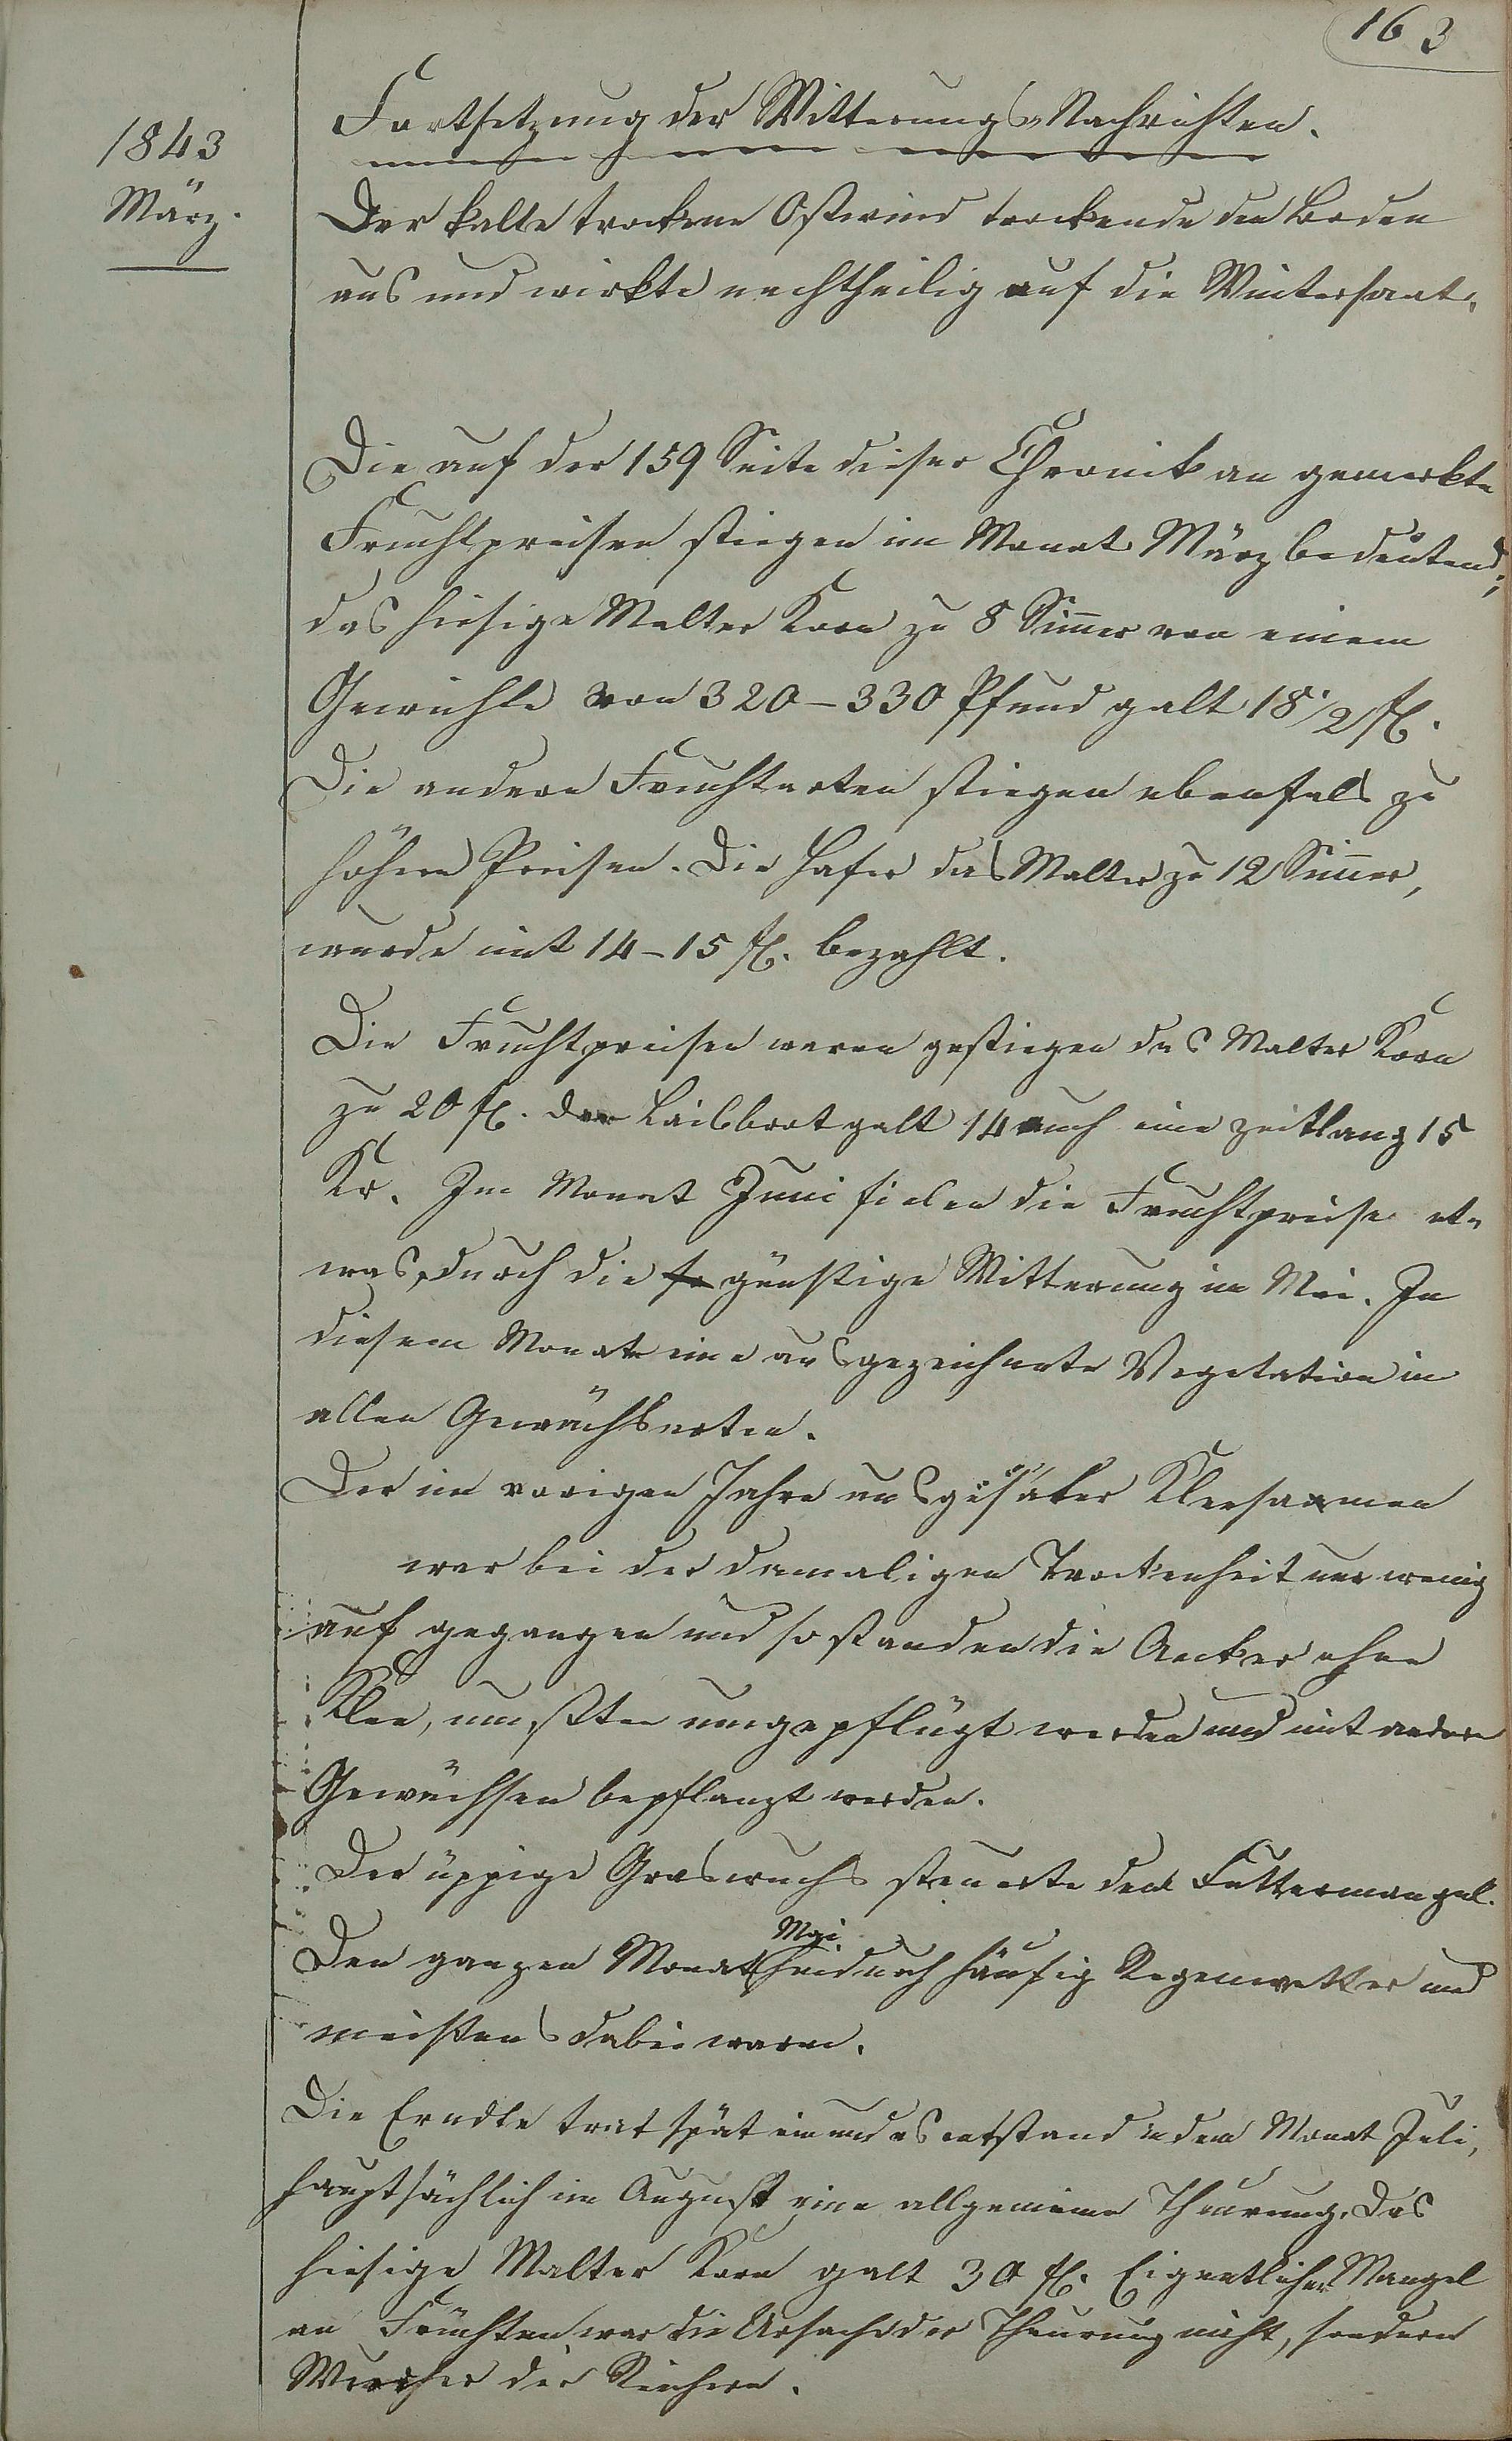 163
1843
März.
Fortsetzung der Witterungs-Nachrichten.
Der kalte trockene Ostwind trockende den Boden
aus und wirkte nachtheilig auf die Wintersaat.
Die auf der 159 Seite dieser Chronik an gemerkte
Fruchtpreisen stiegen im Monat März bedeutend;
das hiesige Malter Korn zu 8 Sim̅er von einem
Gewichte von 320-330 Pfund galt 18 1/2 fl.
Die andern Fruchtarten stiegen ebenfals zu
höhern Preisen. Die Hafer das Malter zu 12 Sim̅er,
wurde mit 14-15 fl. bezahlt.
Die Fruchtpreisen waren gestiegen das Malter Korn
zu 20 fl. der Laibbrot galt 14 auch eine zeitlang 15
Kr. Im Monat Juni fielen die Fruchtpreise et-
was, durch die günstige Witterung im Mai. In
diesem Monate eine ausgezeichnete Vegetation in
allen Gewächsarten.
Der im vorigen Jahre ausgesäter Kleesaamen
war bei der damaligen Trockenheit nur wenig
auf gegangen und so standen die Aecker ohne
Klee, mußten umgepflügt werden und mit andern
Gewächsen bepflanzt werden.
Der üppige Graswuchs steuerte dem Futtermangel.
Den ganzen Monat Mai hindurch häufig Regenwetter und
meistens dabei warm.
Die Erndte trat spät ein und es entstand in dem Monat Juli,
hauptsächlich im August eine allgemeine Theurung. Das
hiesige Malter Korn galt 30 fl. Eigentlicher Mangel
an Früchten war die Ursache der Theurung nicht, sondern
Wucher der Reichern.